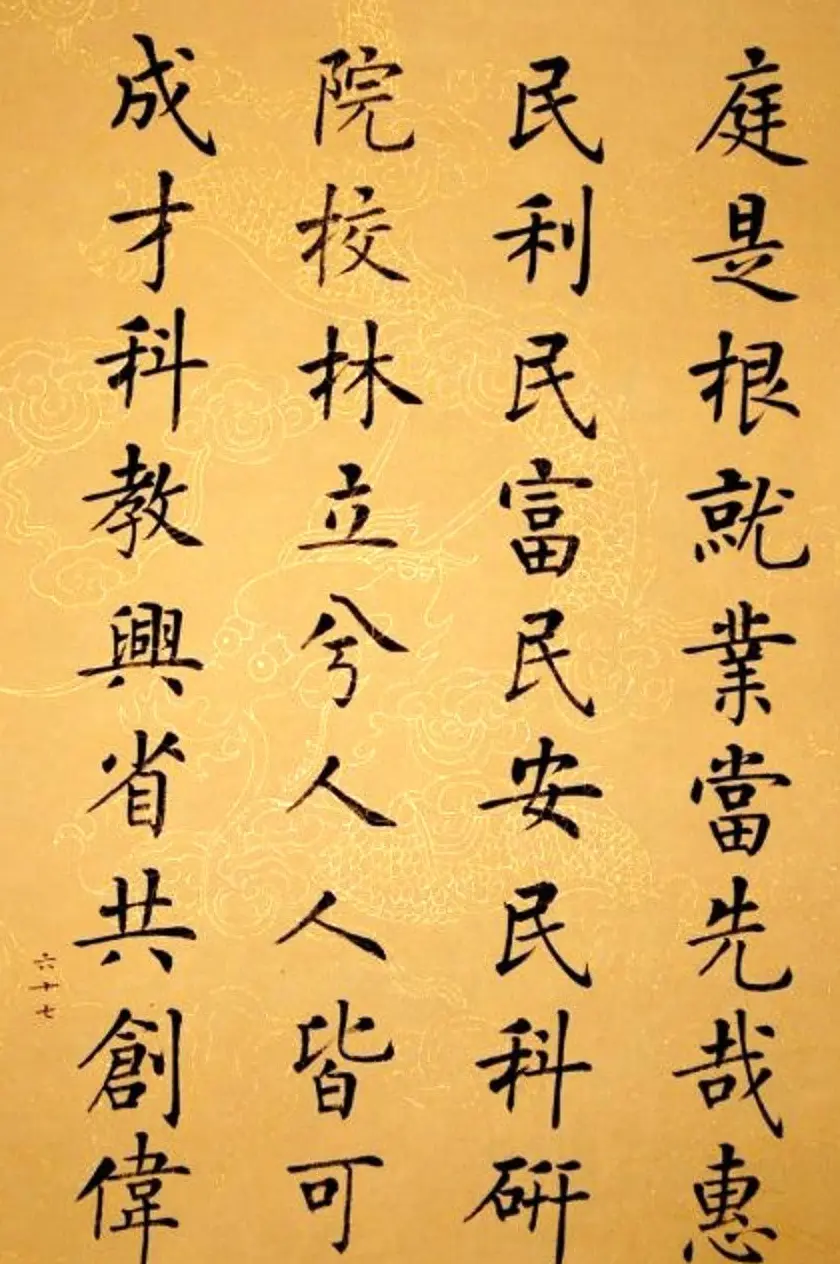 庭是根就業當先哉惠
民利民富民安民科研
院校林立兮人人皆可
成才科教興省共創偉
六十七